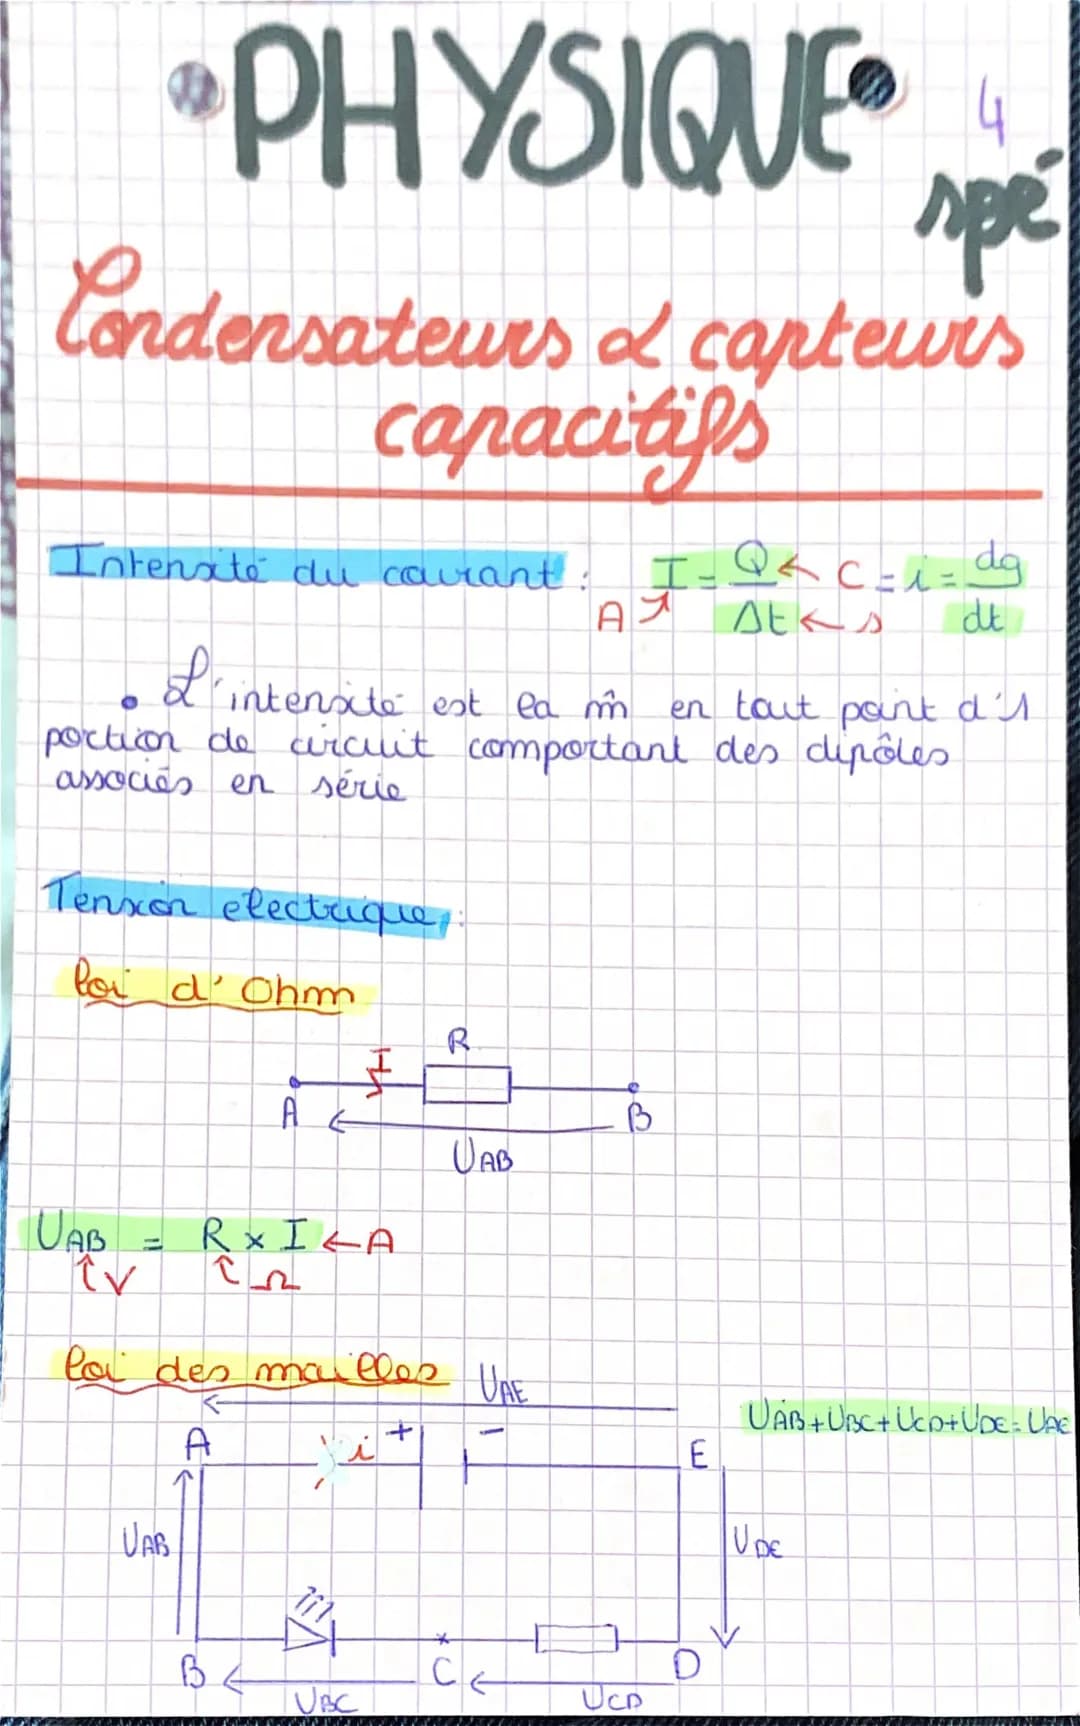 PHYSIQUE 4
spé
Condensateurs & capteurs
capacitifs
Intensité du courant : I = Q ← C = i = dq
A ↗ Δt ← s dt
• L'intensité est la m̂ en tout point d'1
portion de circuit comportant des dipôles
associés en série
Tension electrique :
loi d'Ohm
R
I
A B
UAB
UAB = R x I ← A
↑ V ↑ Ω
loi des mailles UAE
UAB + UBC + UCD + UDE = UAE
A i + - E
UAB UDE
B C D
UBC UCD